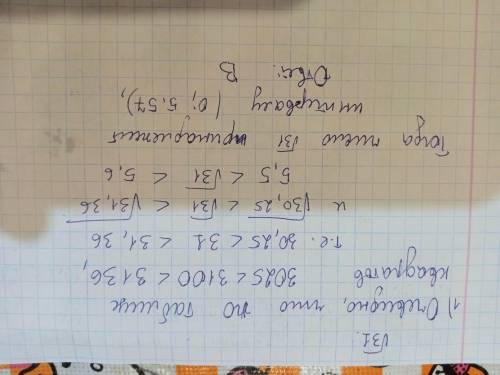 √31.
1) Очевидно, что по таблице
квадратов 3025 < 3100 < 3136,
т.е. 30,25 < 31 < 31,36
и √30,25 < √31 < √31,36
5,5 < √31 < 5,6
Тогда число √31 принадлежит
интервалу (0; 5,57),
Ответ: В